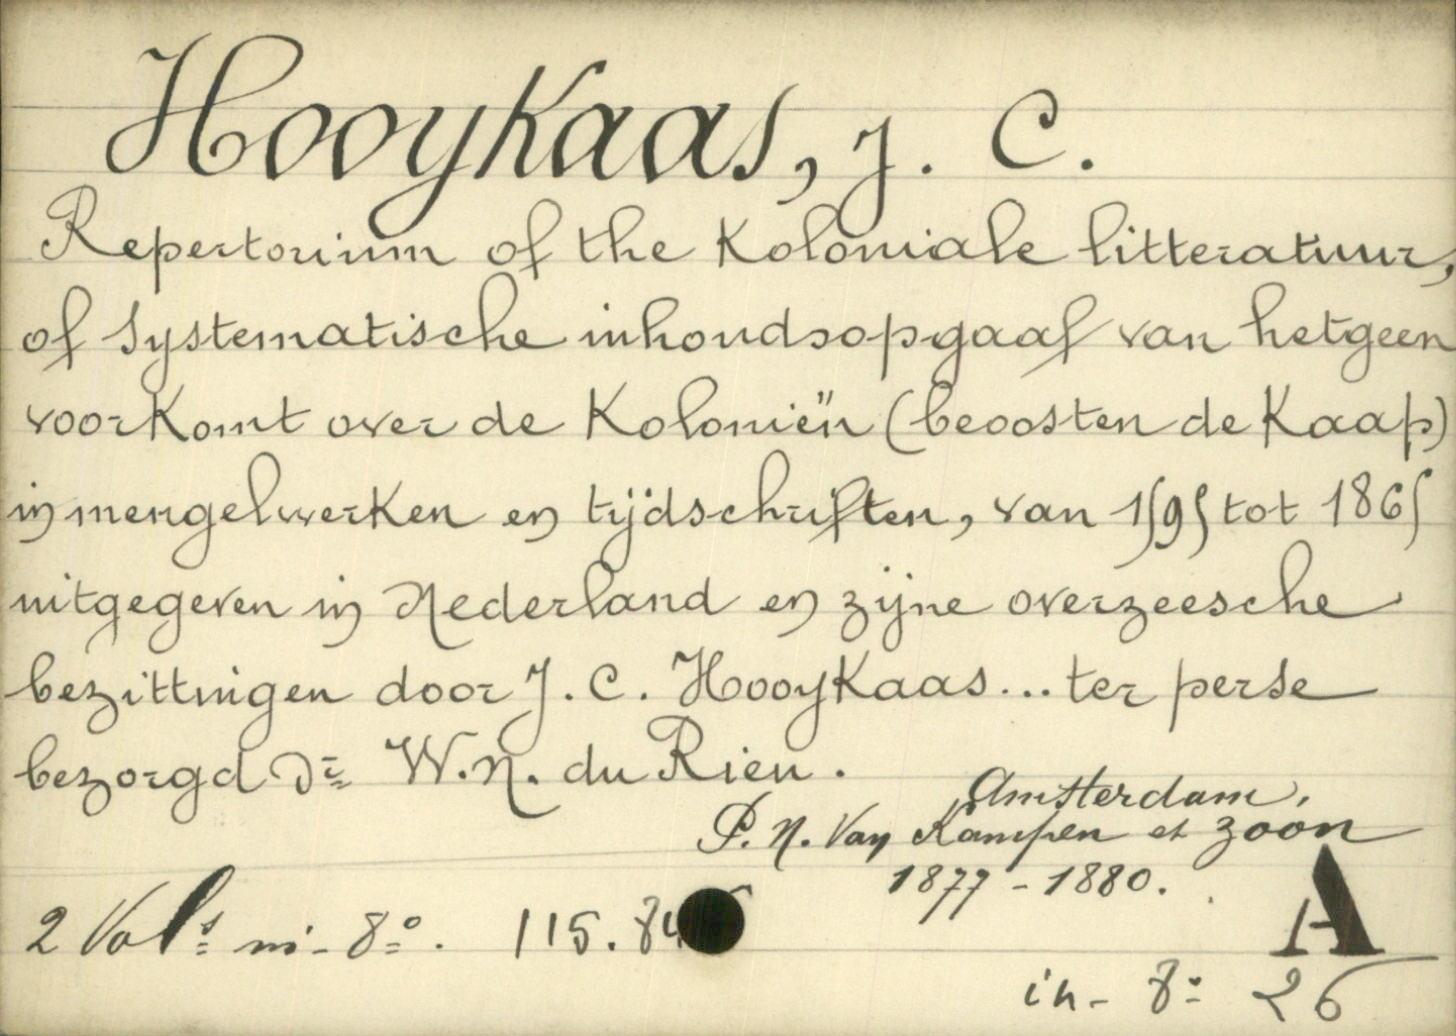 Hooykaas, J. C.
Repertorium of the Koloniale litteratuur,
of Systematische inhoudsopgaaf van hetgeen
voorkomt over de Koloniën (beoosten de Kaap)
in mengelwerken en tijdschriften, van 1595 tot 1865
uitgegeven in Nederland en zijne overzeesche
bezittingen door J. C. Hooykaas... ter perse
bezorgd Dr W.N. du Rieu.
Amsterdam,
P. N. Van Kampen et zoon
1877 - 1880.
2 Vols in-8o. 115.84
A
in-8o 26